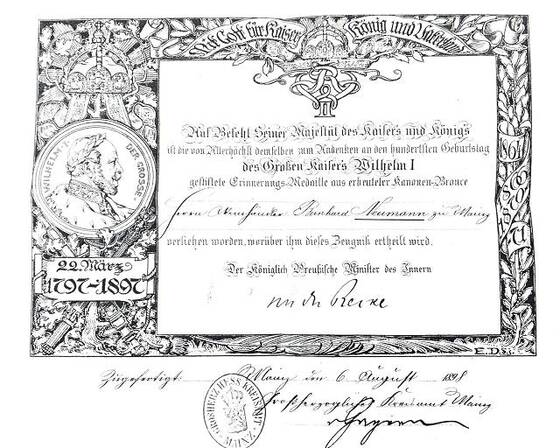 Mit Gott für Kaiser, König und Vaterland
W
II
Auf Befehl Seiner Majestät des Kaisers und Königs
ist die von Allerhöchst demselben zum Andenken an den hundertsten Geburtstag
des Großen Kaisers Wilhelm I
gestiftete Erinnerungs-Medaille aus erbeuteter Kanonen-Bronce
Herrn Weinhändler Reinhard Neumann zu Mainz
verliehen worden, worüber ihm dieses Zeugniß ertheilt wird.
Der Königlich Preußische Minister des Innern
von der Recke
WILHELM DER GROSSE
22. März
1797-1897
E. D.
Zugefertigt Mainz den 6. August 1898
Großherzogliches Kreisamt Mainz
GROSHERZ. HESS. KREISAMT MAINZ